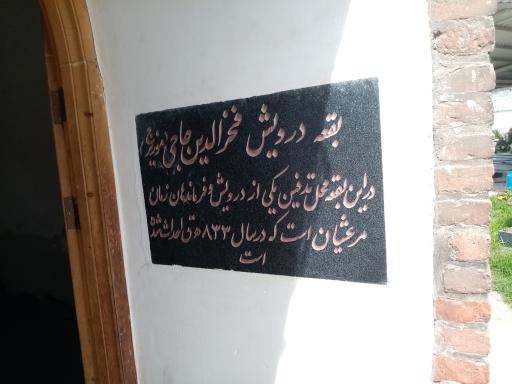 بقعه درویش فخرالدین حاجی
دراین بقعه محل تدفین یکی از درویش و فرماندهان زمان
مرعشیان است که درسال ۸۳۳ ه ق احداث شده
است